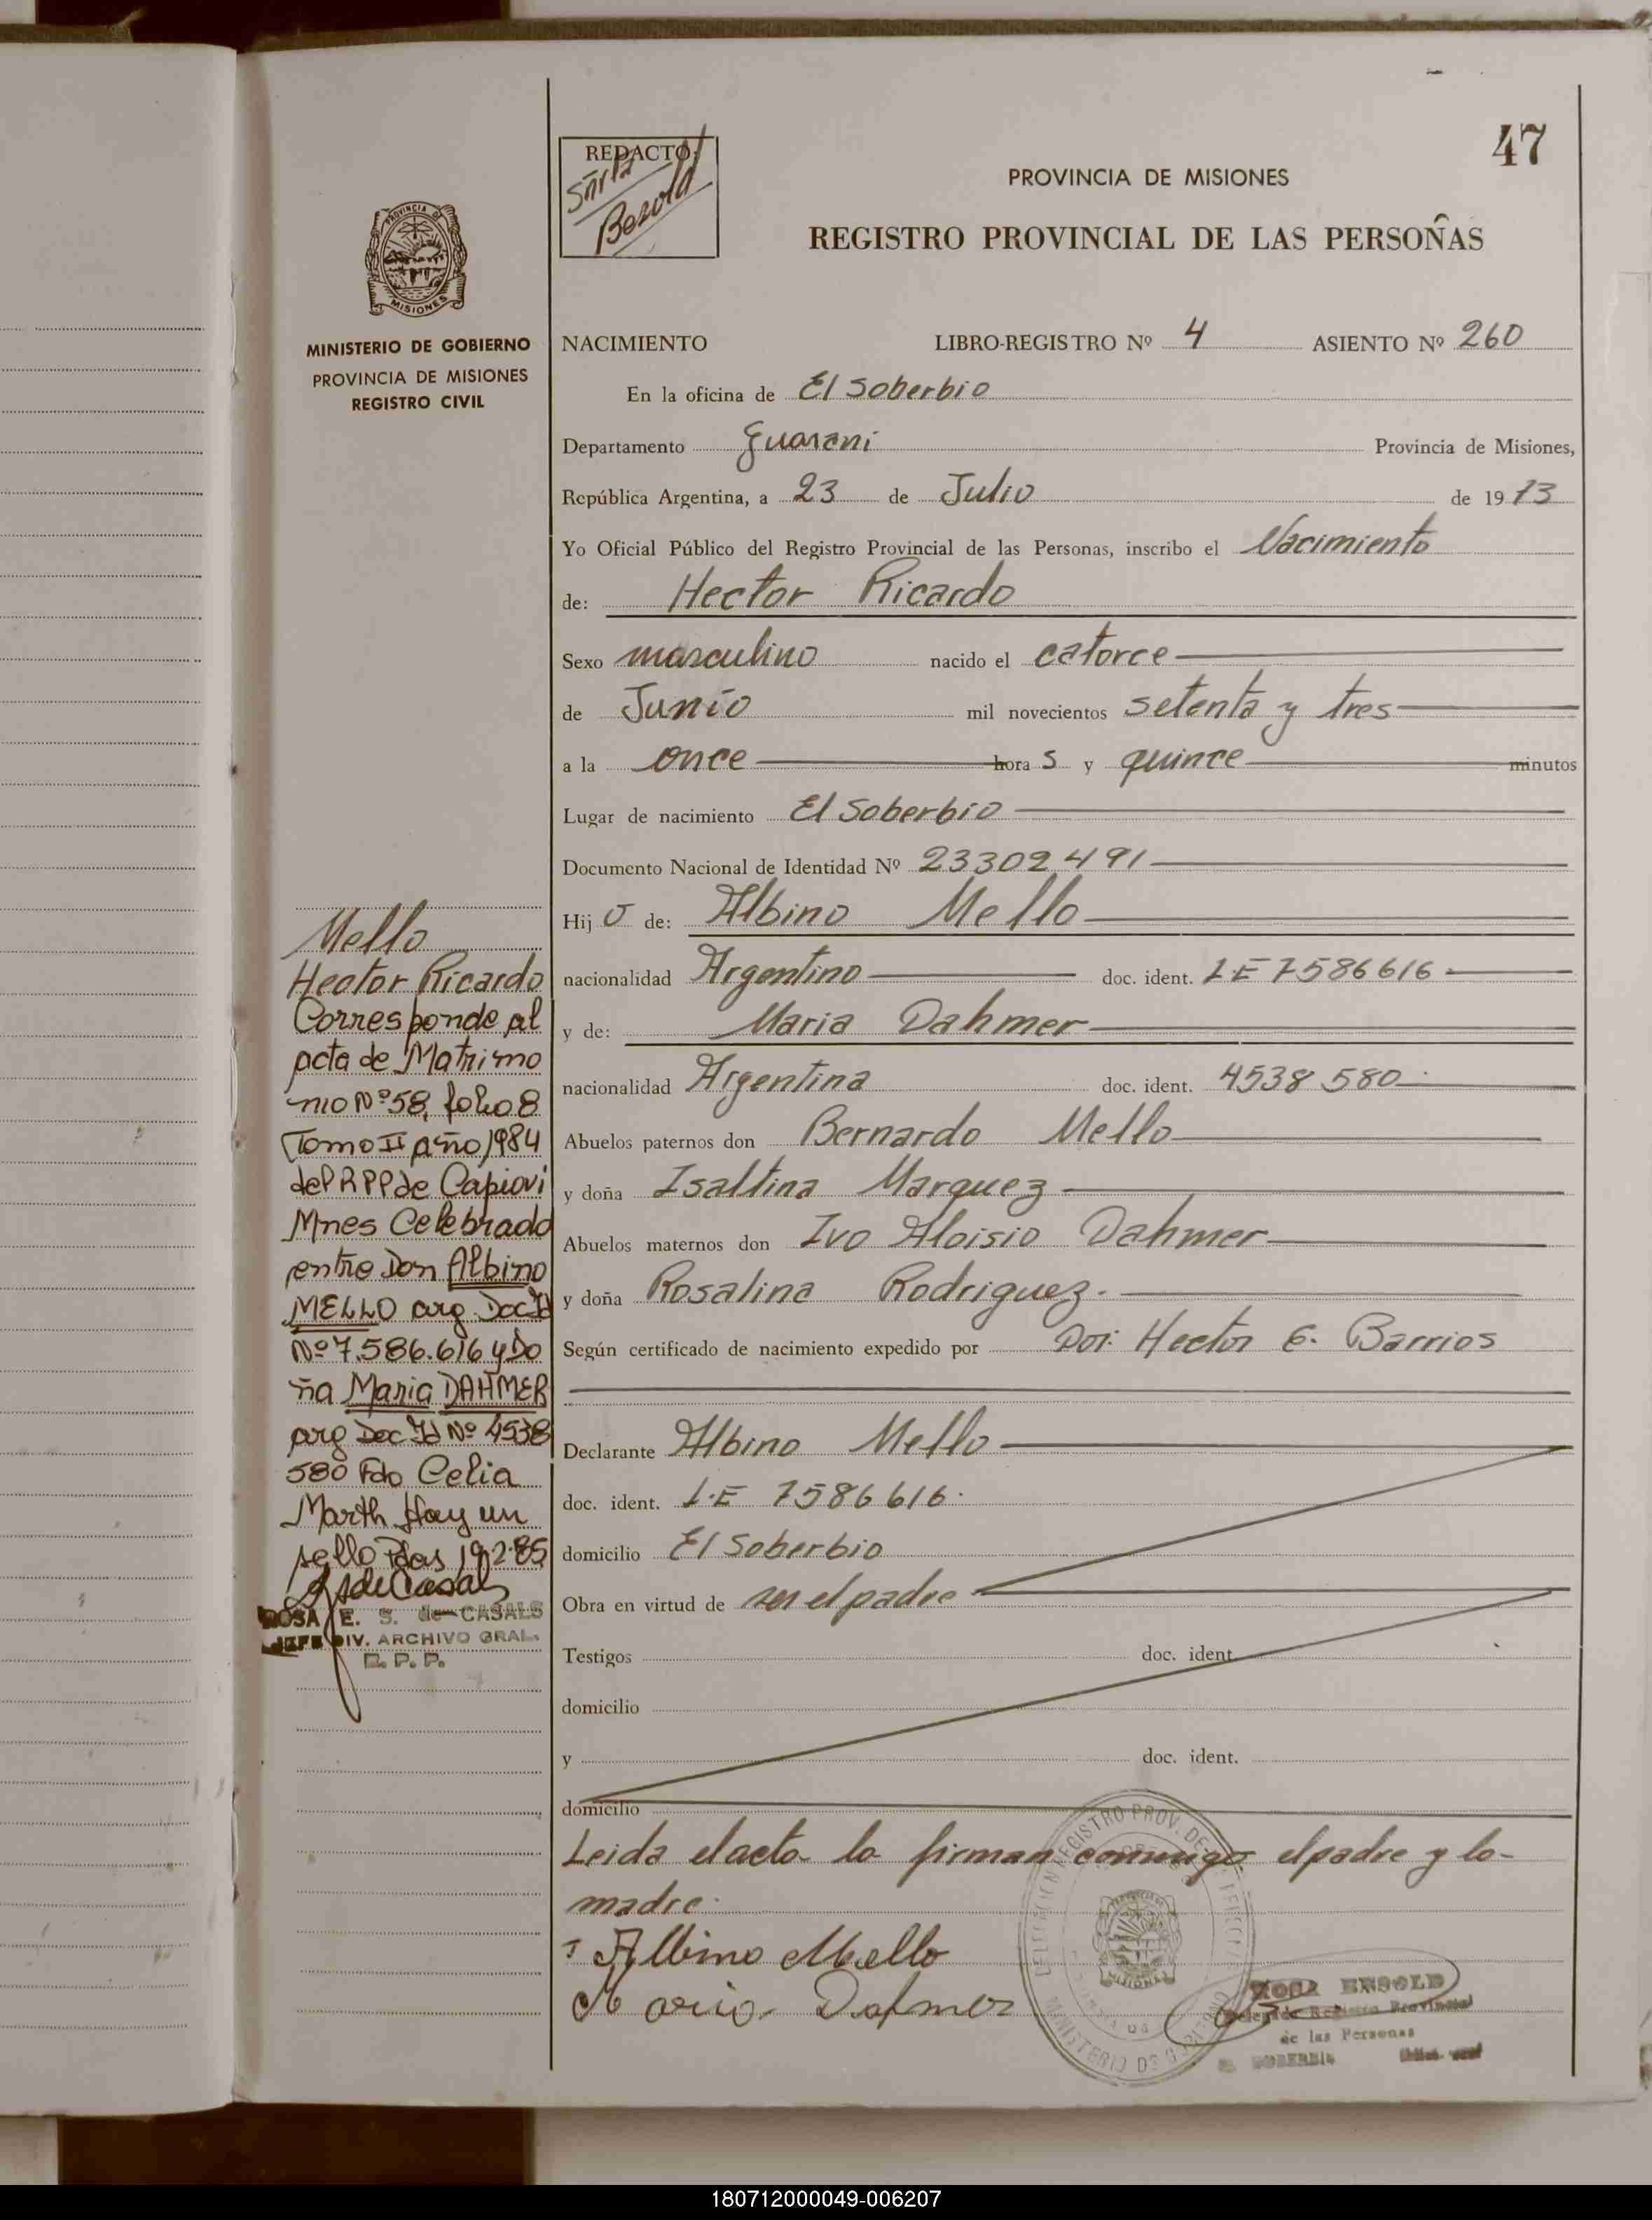 47
REDACTO:
Besold
PROVINCIA DE MISIONES
REGISTRO PROVINCIAL DE LAS PERSOÑAS
PROVINCIA DE
MISIONES
MINISTERIO DE GOBIERNO
PROVINCIA DE MISIONES
REGISTRO CIVIL
NACIMIENTO LIBRO-REGISTRO Nº 4 ASIENTO Nº 260
En la oficina de El Soberbio
Departamento Guarani Provincia de Misiones,
República Argentina, a 23 de Julio de 1973
Yo Oficial Público del Registro Provincial de las Personas, inscribo el Nacimiento
de: Hector Ricardo
Sexo masculino nacido el catorce
de Junio mil novecientos setenta y tres
a la once hora s y quince minutos
Lugar de nacimiento El Soberbio
Documento Nacional de Identidad Nº 23302491
Hij o de: Albino Mello
nacionalidad Argentino doc. ident. L E 7586616
y de: Maria Dahmer
nacionalidad Argentina doc. ident. 4538580
Abuelos paternos don Bernardo Mello
y doña Isaltina Marquez
Abuelos maternos don Ivo Aloisio Dahmer
y doña Rosalina Rodriguez.
Según certificado de nacimiento expedido por Dor: Hector E. Barrios
Declarante Albino Mello
doc. ident. L.E 7586616.
domicilio El Soberbio
Obra en virtud de ser el padre
Testigos doc. ident.
domicilio
y doc. ident.
domicilio
Leida el acta la firman conmigo el padre y la
madre.
Albino Mello
Maria Dahmer
de las Personas
Mello
Hector Ricardo
Corresponde al
acta de Matrimo
nio Nº 58, folio 8
Tomo II año 1984
del RPP de Capiovi
Mnes Celebrado
entre Don Albino
MELLO arg. Doc Id
Nº 7.586.616 y Do
ña Maria DAHMER
arg Doc Id Nº 4538
580 Fdo Celia
Marth Hay un
sello Pdas 19.2.85
ROSA E. S. de CASALS
JEFE DIV. ARCHIVO GRAL.
R. P. P.
180712000049-006207